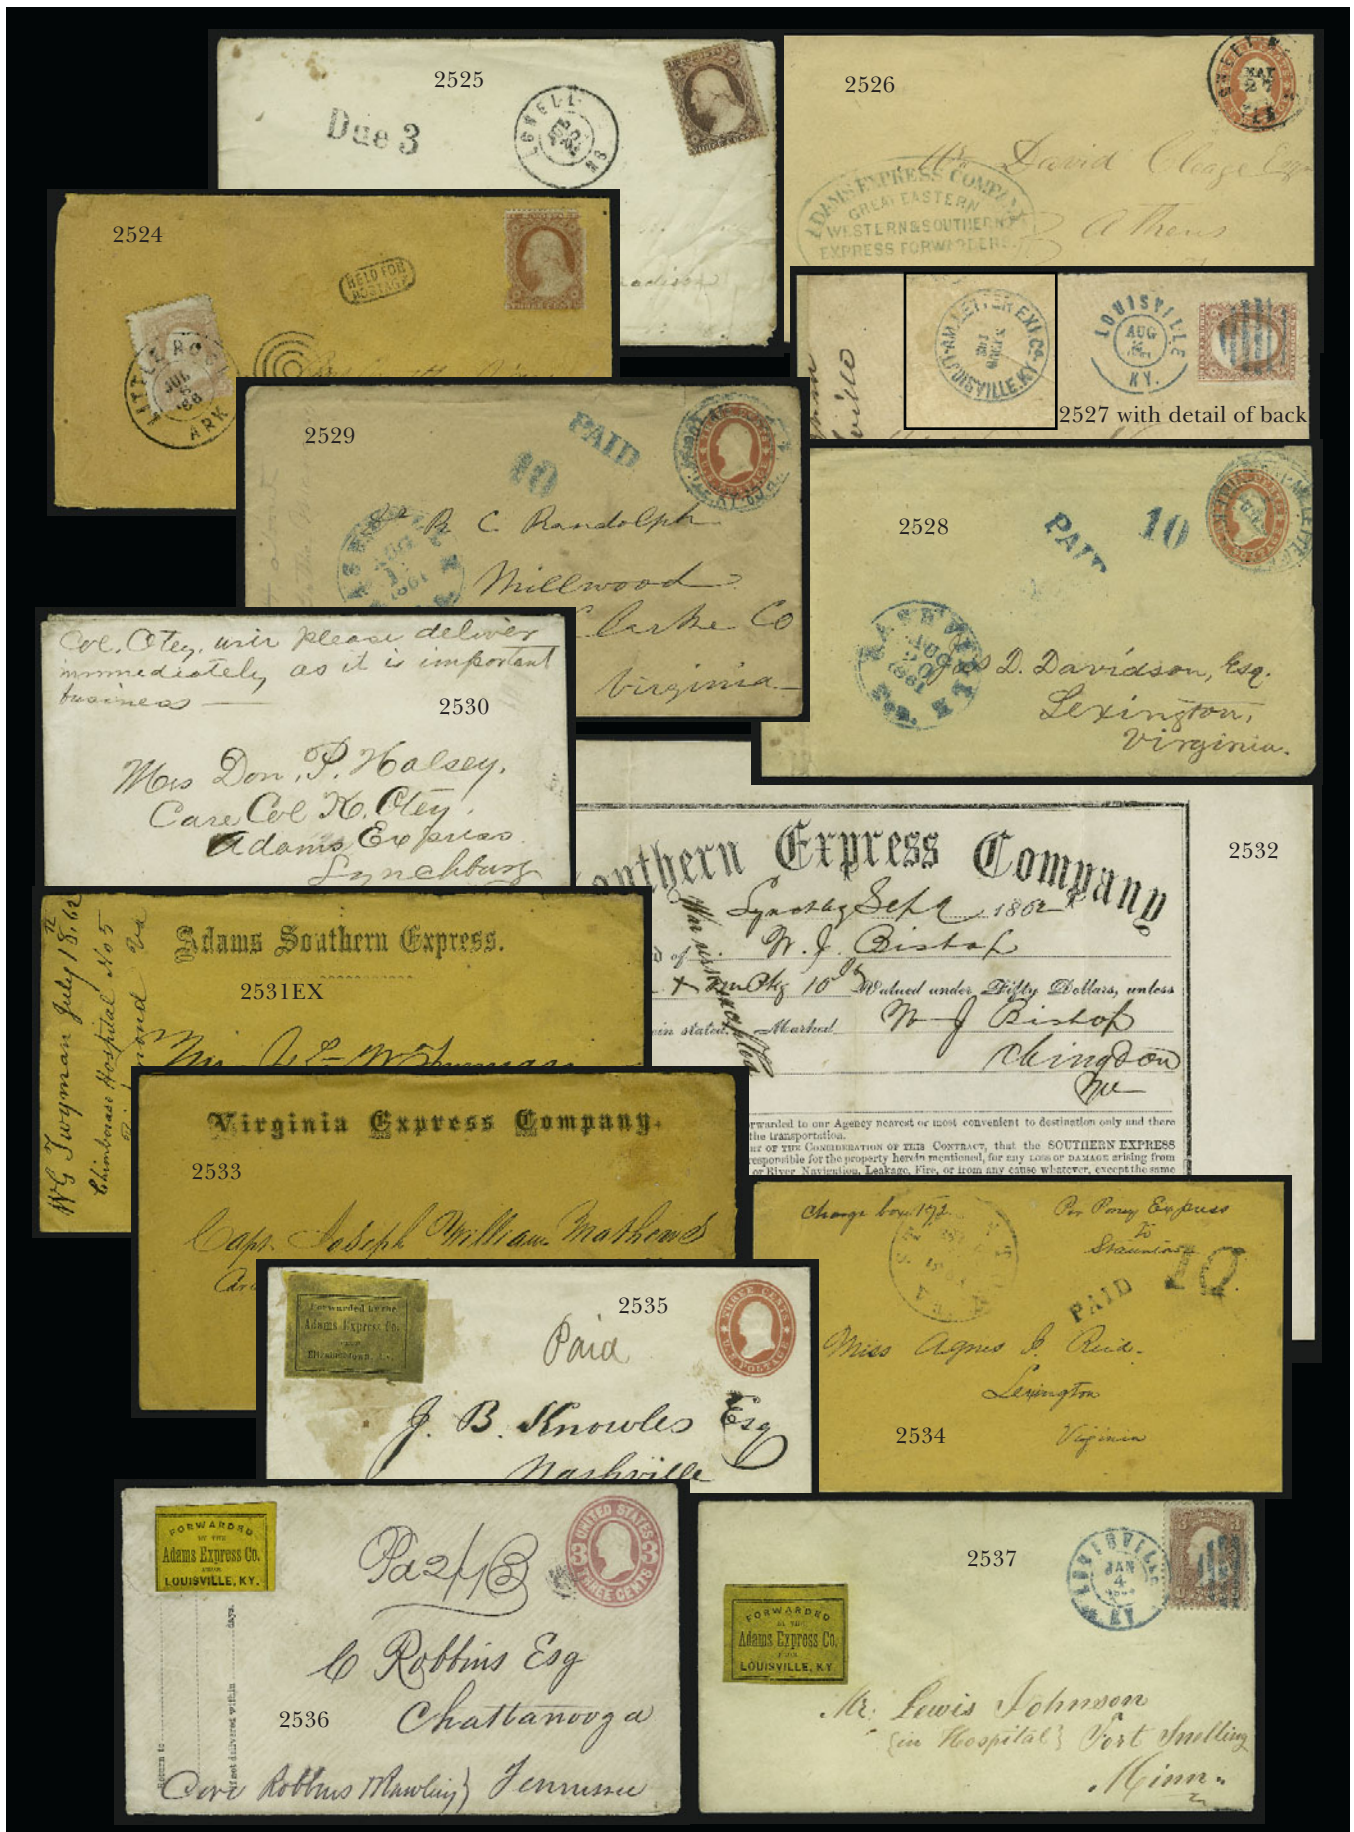 2525
Due 3
LOWELL
MS
2526
MAY
27
TEN
Mr David Cleage Esqr
Athens
ADAMS EXPRESS COMPANY
GREAT EASTERN
WESTERN & SOUTHERN
EXPRESS FORWARDERS.
2524
HELD FOR
POSTAGE
LITTLE ROCK
JUL
ARK
AM. LETTER EXP. CO.
LOUISVILLE, KY.
LOUISVILLE
AUG
KY.
2527 with detail of back
2529
PAID
10
R. C. Randolph
Millwood
Clarke Co
Virginia
1861
2528
PAID
10
NASHVILLE
AUG
20
1861
Jas D. Davidson, Esq.
Lexington,
Virginia.
Col. Otey, will please deliver
immediately as it is important
business
2530
Mrs Don. P. Halsey.
Care Col K. Otey
Adams Express
Lynchburg
2532
Southern Express Company
Sept 1862
W. J. Bishop
Valued under Fifty Dollars, unless
in stated. Marked W J Bishop
forwarded to our Agency nearest or most convenient to destination only and there
the transportation.
OF THE CONSIDERATION OF THIS CONTRACT, that the SOUTHERN EXPRESS
responsible for the property herein mentioned, for any LOSS OR DAMAGE arising from
or River Navigation, Leakage, Fire, or from any cause whatever, except the same
Adams Southern Express.
2531EX
WG Twyman July 18th. 62
Chimborazo Hospital No 5
Richmond Va
Virginia Express Company.
2533
Capt. Joseph William Mathews
Charge box 192
Per Poney Express
To
Staunton
PAID 10
Miss Agnes I. Reid.
Lexington
Virginia
2534
Forwarded by the
Adams Express Co.
FROM
Elizabethtown, Ky.
2535
Paid
THREE CENTS
U.S. POSTAGE
J. B. Knowles Esq
Nashville
FORWARDED
BY THE
Adams Express Co.
FROM
LOUISVILLE, KY.
UNITED STATES
3 3
THREE CENTS
C Robbins Esq
Chattanooga
Tennessee
2536
Return to
If not delivered within days.
2537
LOUISVILLE
JAN
4
KY
FORWARDED
BY THE
Adams Express Co.
FROM
LOUISVILLE, KY
Mr. Lewis Johnson
{in Hospital} Fort Snelling
Minn.